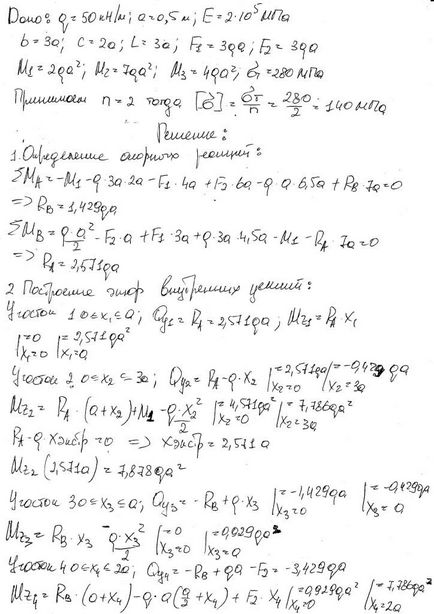 Дано: q = 50 кН/м; a = 0,5 м; E = 2·10⁵ МПа
b = 3a; c = 2a; L = 3a; F₁ = 3qa; F₂ = 3qa
M₁ = 2qa²; M₂ = 7qa²; M₃ = 4qa²; σт = 280 МПа
Принимаем n = 2 тогда [σ] = σт/n = 280/2 = 140 МПа
Решение:
1. Определение опорных реакций:
ΣM_A = -M₁ - q·3a·2a - F₁·4a + F₂·6a - q·a·6,5a + R_B·7a = 0
=> R_B = 1,429qa
ΣM_B = q·a²/2 - F₂·a + F₁·3a + q·3a·4,5a - M₁ - R_A·7a = 0
=> R_A = 2,571qa
2 Построение эпюр внутренних усилий:
Участок 1 0≤x₁≤a; Qy₁ = R_A = 2,571qa; Mz₁ = R_A·x₁
|=0 |x₁=0 |=2,571qa² |x₁=a
Участок 2 0≤x₂≤3a; Qy₂ = R_A - q·x₂ |=2,571qa |x₂=0 |=-0,429qa |x₂=3a
Mz₂ = R_A·(a+x₂) + M₁ - q·x₂²/2 |=4,571qa² |x₂=0 |=7,786qa² |x₂=3a
R_A - q·xэкстр = 0 => xэкстр = 2,571a
Mz₂(2,571a) = 7,878qa²
Участок 3 0≤x₃≤a; Qy₃ = -R_B + q·x₃ |=-1,429qa |x₃=0 |=-0,429qa |x₃=a
Mz₃ = R_B·x₃ - q·x₃²/2 |=0 |x₃=0 |=0,929qa² |x₃=a
Участок 4 0≤x₄≤2a; Qy₄ = -R_B + qa - F₂ = -3,429qa
Mz₄ = R_B·(a+x₄) - q·a(a/2+x₄) + F₂·x₄ |=0,929qa² |x₄=0 |=7,786qa² |x₄=2a